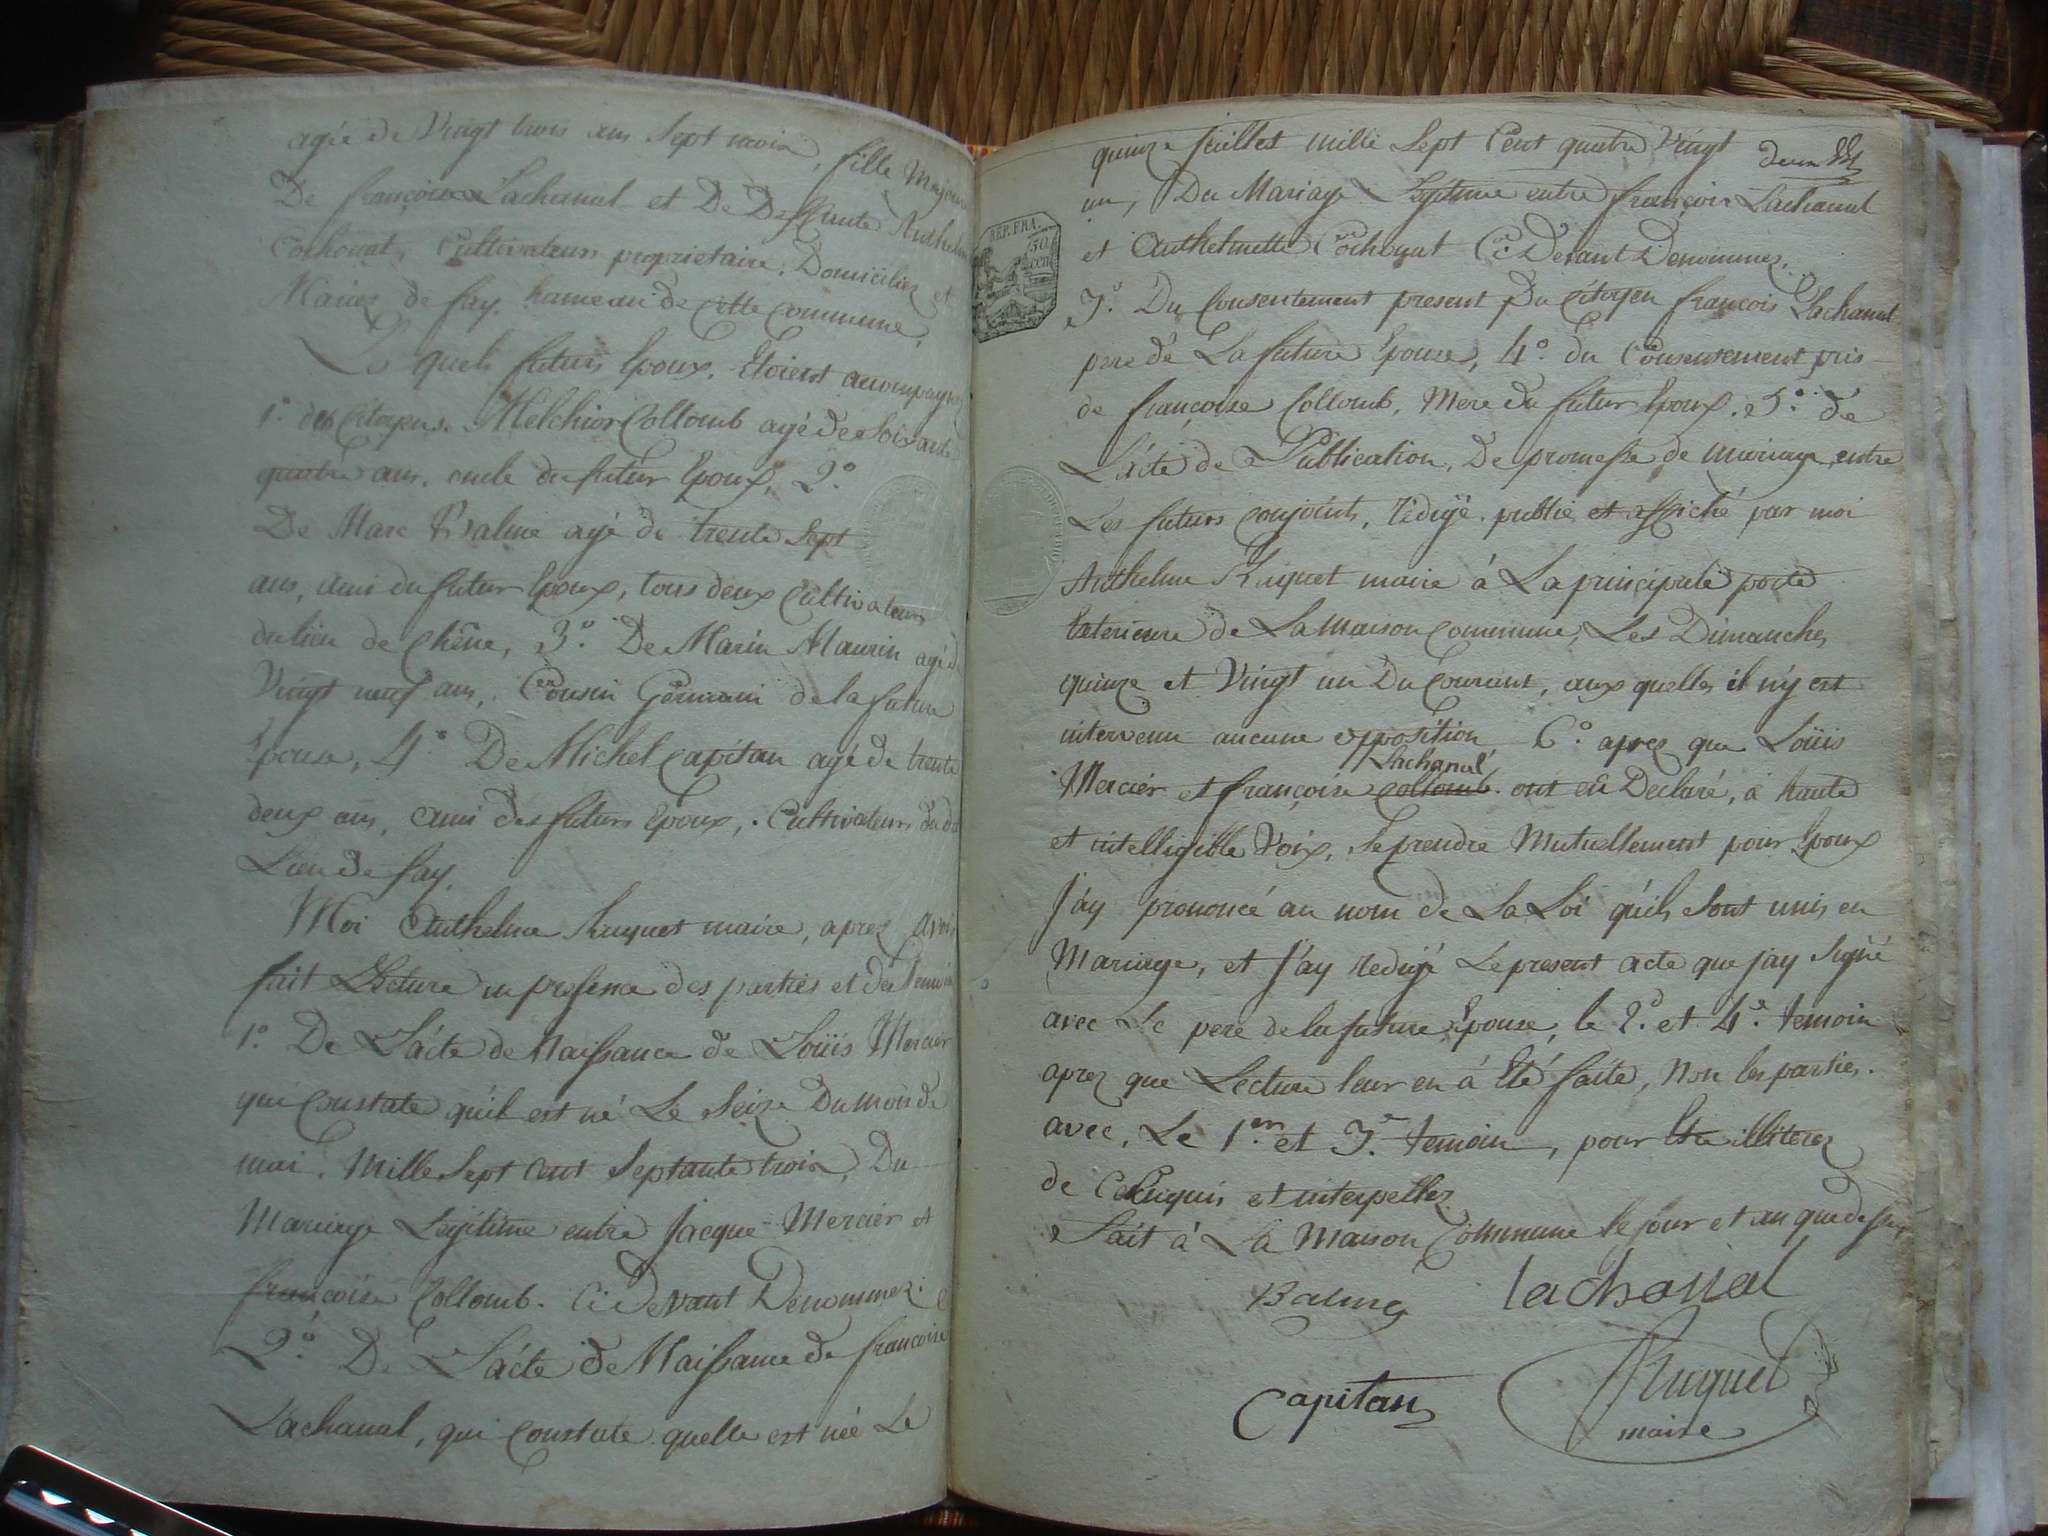 agée de Vingt trois ans Sept mois, fille Majeure
De françoise Lachanal et De Deffunte Anthelm
Cochonat, Cultivateurs proprietaire, Domiciliez et
Mariez de fay. hameau de Cette Commune,
Les quels futurs Epoux, Etoient accompagnez
1.º des Citoyens. Melchior Collomb agé de Soixante
quatre ans, oncle du futur Epoux, 2.º
De Marc Balme agé de trente Sept
ans, ami du futur Epoux, tous deux Cultivateurs
du lieu de Chêne, 3.º De Marin Maurin agé de
Vingt neuf ans, Cousin Germain de la future
Epouse, 4.º De Michel Capitan agé de trente
deux ans, ami des futurs Epoux, Cultivateurs du d.
Lieu de fay.
Moi Anthelme Ruquet maire, aprez avoir
fait Lecture en presence des parties et des temoins
1.º De L'acte de Naissance de Loüis Mercier
qui Constate qu'il est né Le Seize Du mois de
mai. Mille Sept Cent Septante trois, Du
Mariage Legitime entre Jacque Mercier et
françoise Collomb. Ci Devant Denommez.
2.º De L'acte de Naissance de francoise
Lachanal, qui Constate quelle est née Le
quinze juillet mille Sept Cent quatre Vingt
un, Du Mariage Legitime entre françois Lachanal
et Anthelmette Cochonat Ci Devant Denommez.
REP. FRA.
50 cen
3.º Du Consentement present Du Citoyen françois Lachanal
pere de La future Epouse, 4.º du Consentement pris
de françoise Collomb, Mere du futur Epoux. 5.º de
L'acte de Publication, De promesse de mariage entre
Les futurs Conjoints, redigé, publié et affiché par moi
Anthelme Ruquet maire à La principale porte
Exterieure de La maison Commune, Les Dimanches
quinze et Vingt un Du Courant, aux quelles il n'y est
intervenu aucune opposition 6.º aprez que Loüis
Lachanal
Mercier et françoise collomb. ont eû Declaré, à haute
et intelligible Voix, Se prendre Mutuellement pour Epoux
J'ay prononcé au nom de La Loi qu'ils Sont unis en
Mariage, et J'ay redigé Le present acte que j'ay Signé
avec Le pere de la future Epouse, le 2.e et 4.e temoin
aprez que Lecture leur en à Eté faite, Non les parties.
avec, Le 1.er et 3.e temoin, pour Etre illiterez
de Ce Enquis et interpellez
Fait à La Maison Commune le jour et an que dessus
Balme lachanal
Capitan Ruquet
maire